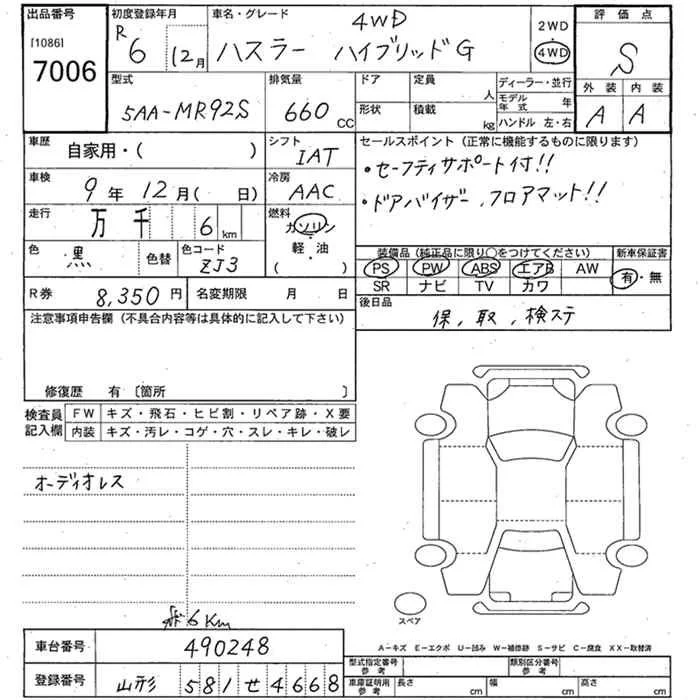 出品番号
[1086]
7006
初度登録年月
R 6 12月
車名・グレード
4WD
ハスラー ハイブリッドG
2WD
4WD
評価点
S
外装 内装
A A
型式
5AA-MR92S
排気量
660 cc
ドア 定員 人
形状 積載 kg
ディーラー・並行
モデル年式 年
ハンドル 左・右
車歴
自家用・( )
シフト
IAT
車検
9年 12月( 日)
冷房
AAC
走行
万 千 6 km
燃料
ガソリン・
軽・油
( )
色
黒
色替
色コード
ZJ3
R券 8,350円
名変期限 月 日
セールスポイント (正常に機能するものに限ります)
・セーフティサポート付!!
・ドアバイザー, フロアマット!!
装備品 (純正品に限り○をつけてください)
新車保証書
PS PW ABS エアB AW
SR ナビ TV カワ
有・無
後日品
保, 取, 検ステ
注意事項申告欄 (不具合内容等は具体的に記入して下さい)
修復歴 有 〔箇所 〕
検査員記入欄
FW キズ・飛石・ヒビ割・リペア跡・X要
内装 キズ・汚レ・コゲ・穴・スレ・キレ・破レ
オーディオレス
6Km
スペア
A-キズ E-エクボ U-凹み W-補修跡 S-サビ C-腐食 XX-取替済
車台番号 490248
登録番号 山形 581 せ 4668
型式指定番号 参考
類別区分番号 参考
車庫証明用 参考
長さ cm 幅 cm 高さ cm